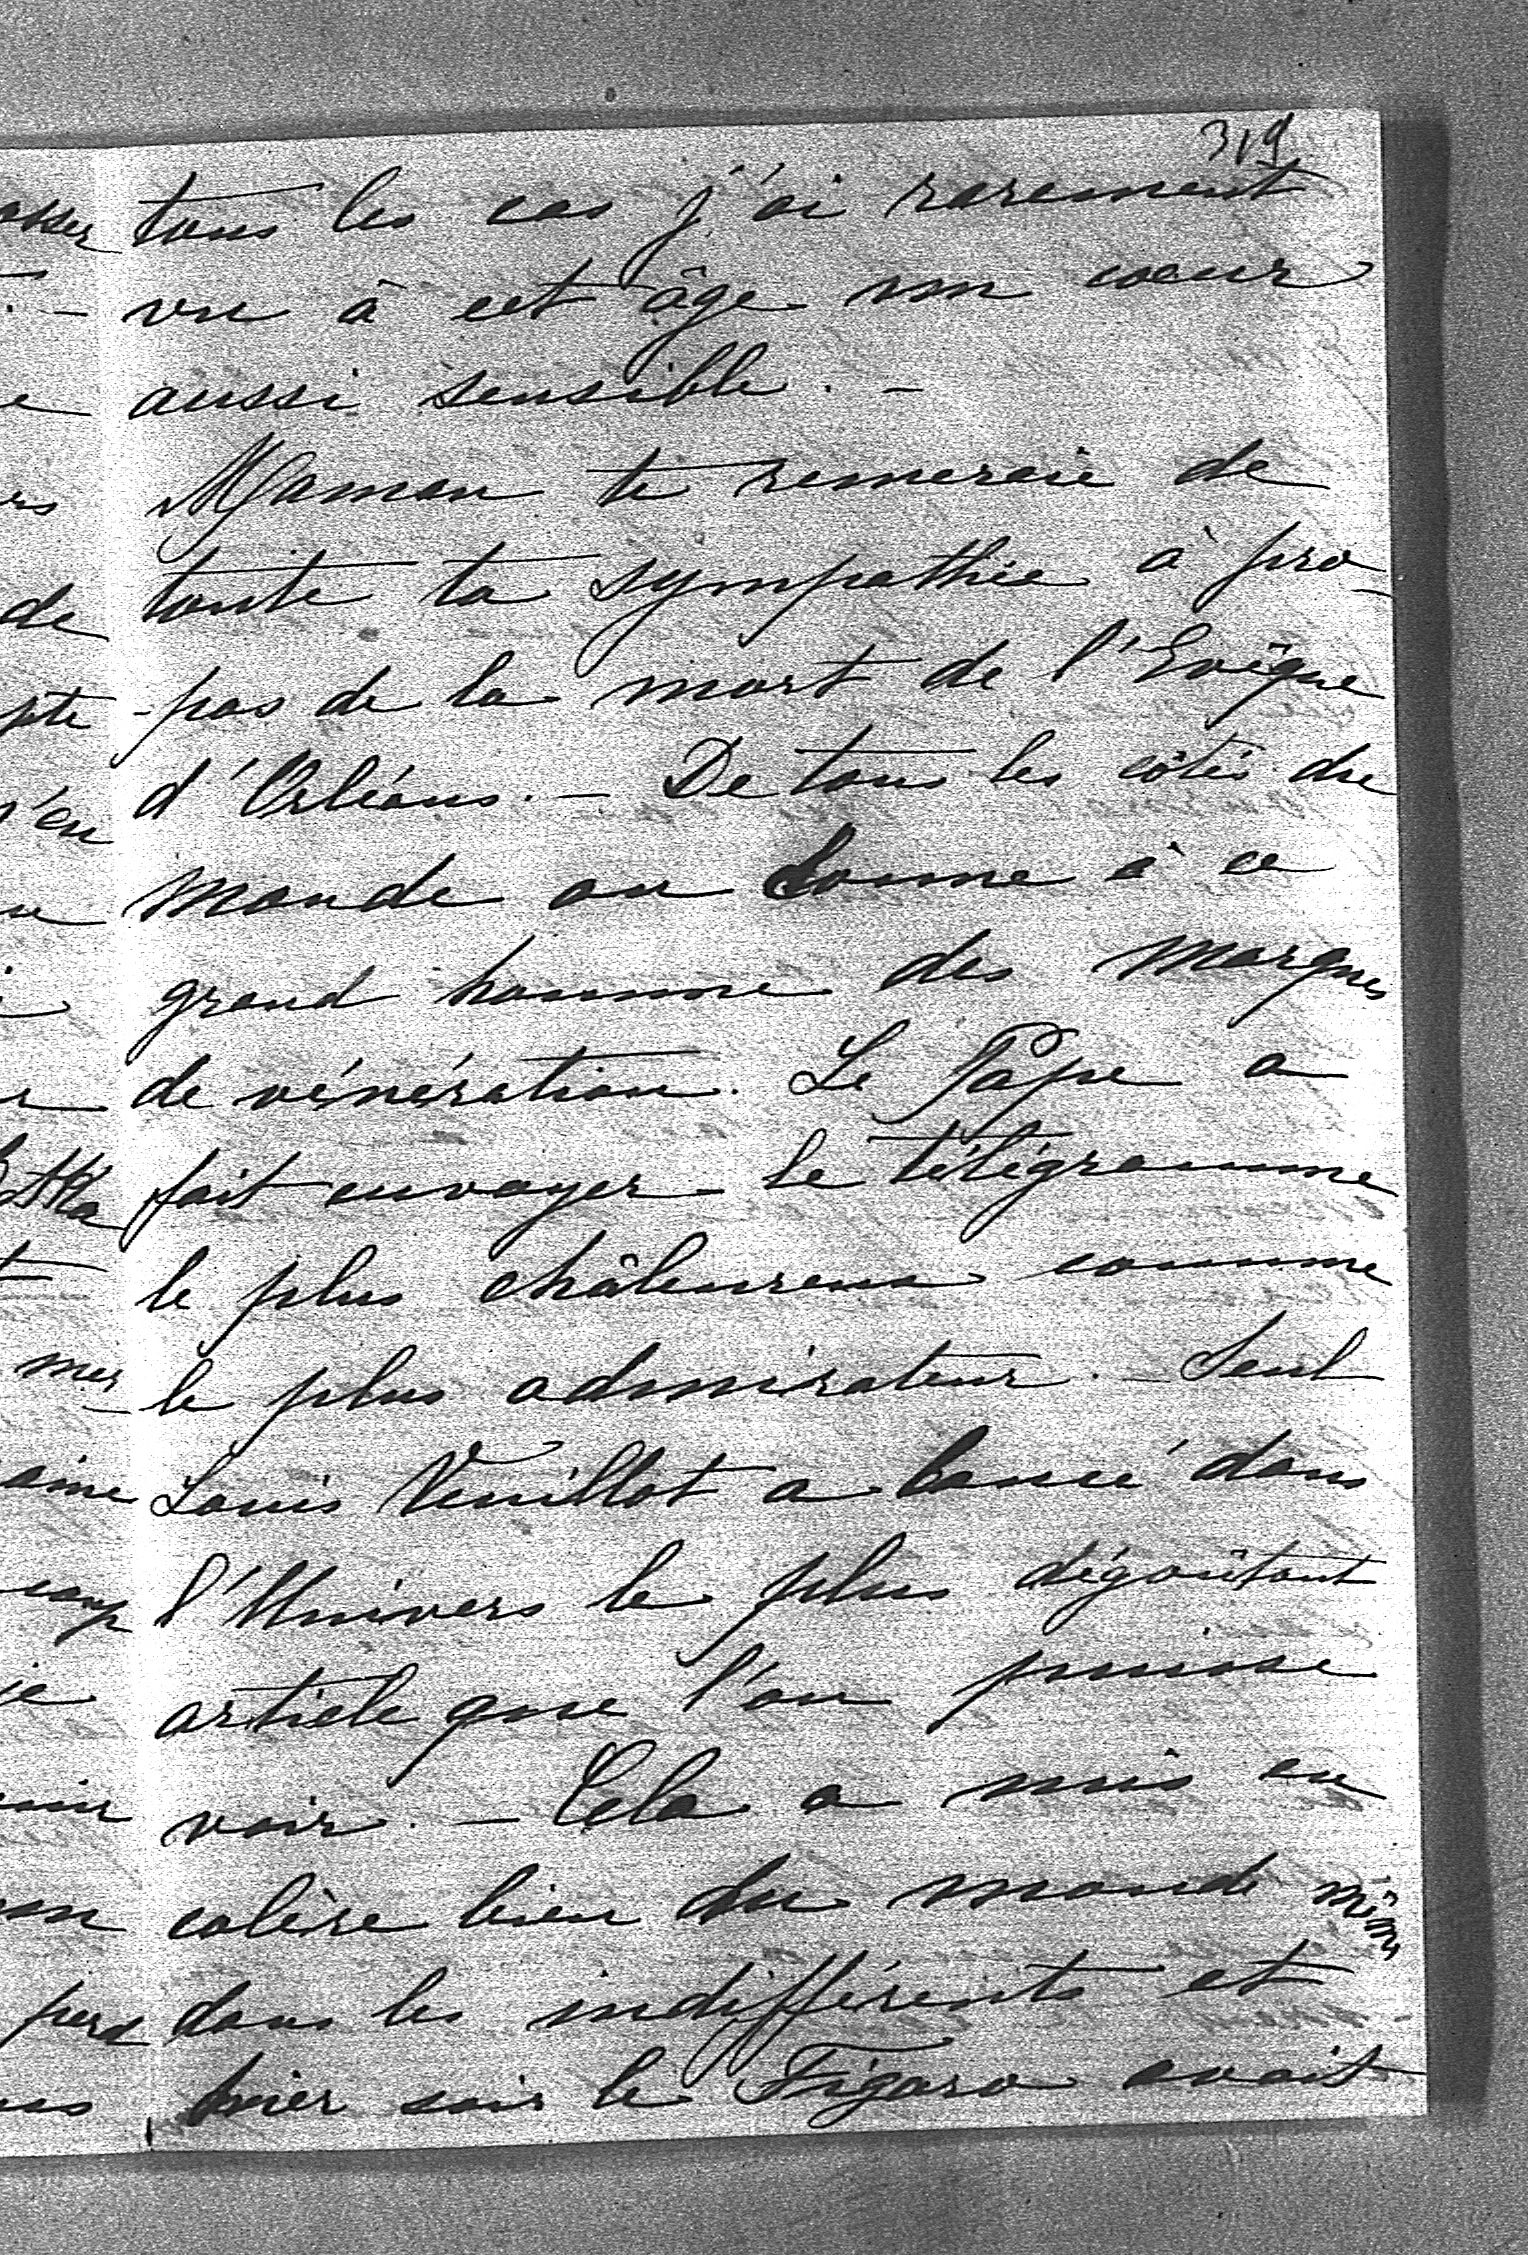 319
tous les cas j'ai rarement
vu à cet âge un coeur
aussi sensible. –
Maman te remercie de
toute ta sympathie à pro-
-pos de la mort de l'Evêque
d'Orléans. – De tous les côtés du
monde on donne à ce
grand homme des marques
de vénération. Le Pape a
fait envoyer le télégramme
le plus châleureux comme
le plus admirateur. – Seul
Louis Veuillot a lancé dans
l'Univers le plus dégoûtant
article que l'on puisse
voir. – Cela a mis en
colère bien du monde même
dans les indifférents et
hier soir le Figaro avait